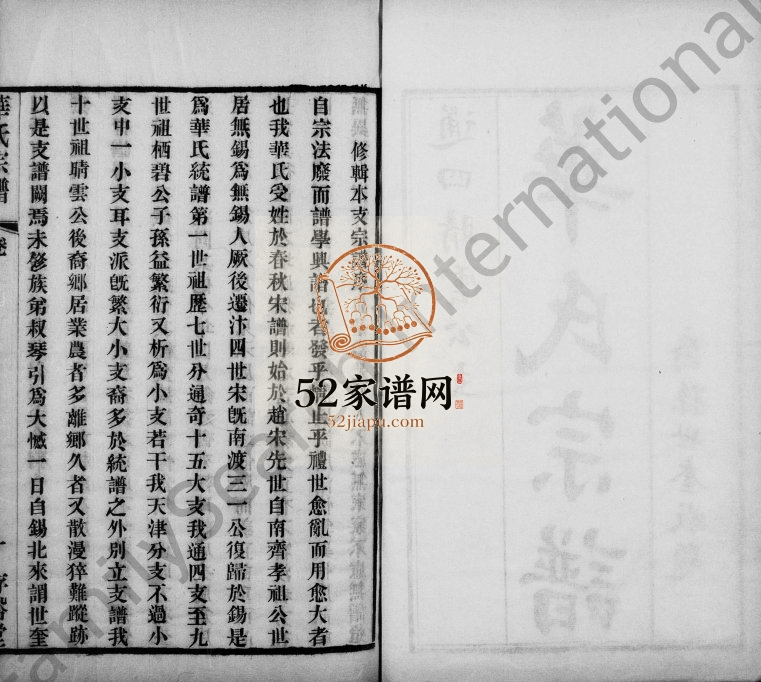 修輯本支宗譜
自宗法廢而譜學興譜也者發乎情止乎禮世愈亂而用愈大者
也我華氏受姓於春秋宋譜則始於趙宋先世自南齊孝祖公世
居無錫爲無錫人厥後遷汴四世宋旣南渡三一公復歸於錫是
爲華氏統譜第一世祖歷七世分通奇十五大支我通四支至九
世祖栖碧公子孫益繁衍又析爲小支若干我天津分支不過小
支中一小支耳支派旣繁大小支裔多於統譜之外別立支譜我
十世祖晴雲公後裔鄉居業農者多離鄉久者又散漫猝難蹤跡
以是支譜闕焉未修族弟叔琴引爲大憾一日自錫北來謂世奎
華氏宗譜
卷
52家谱网
52jiapu.com
FamilySearch International